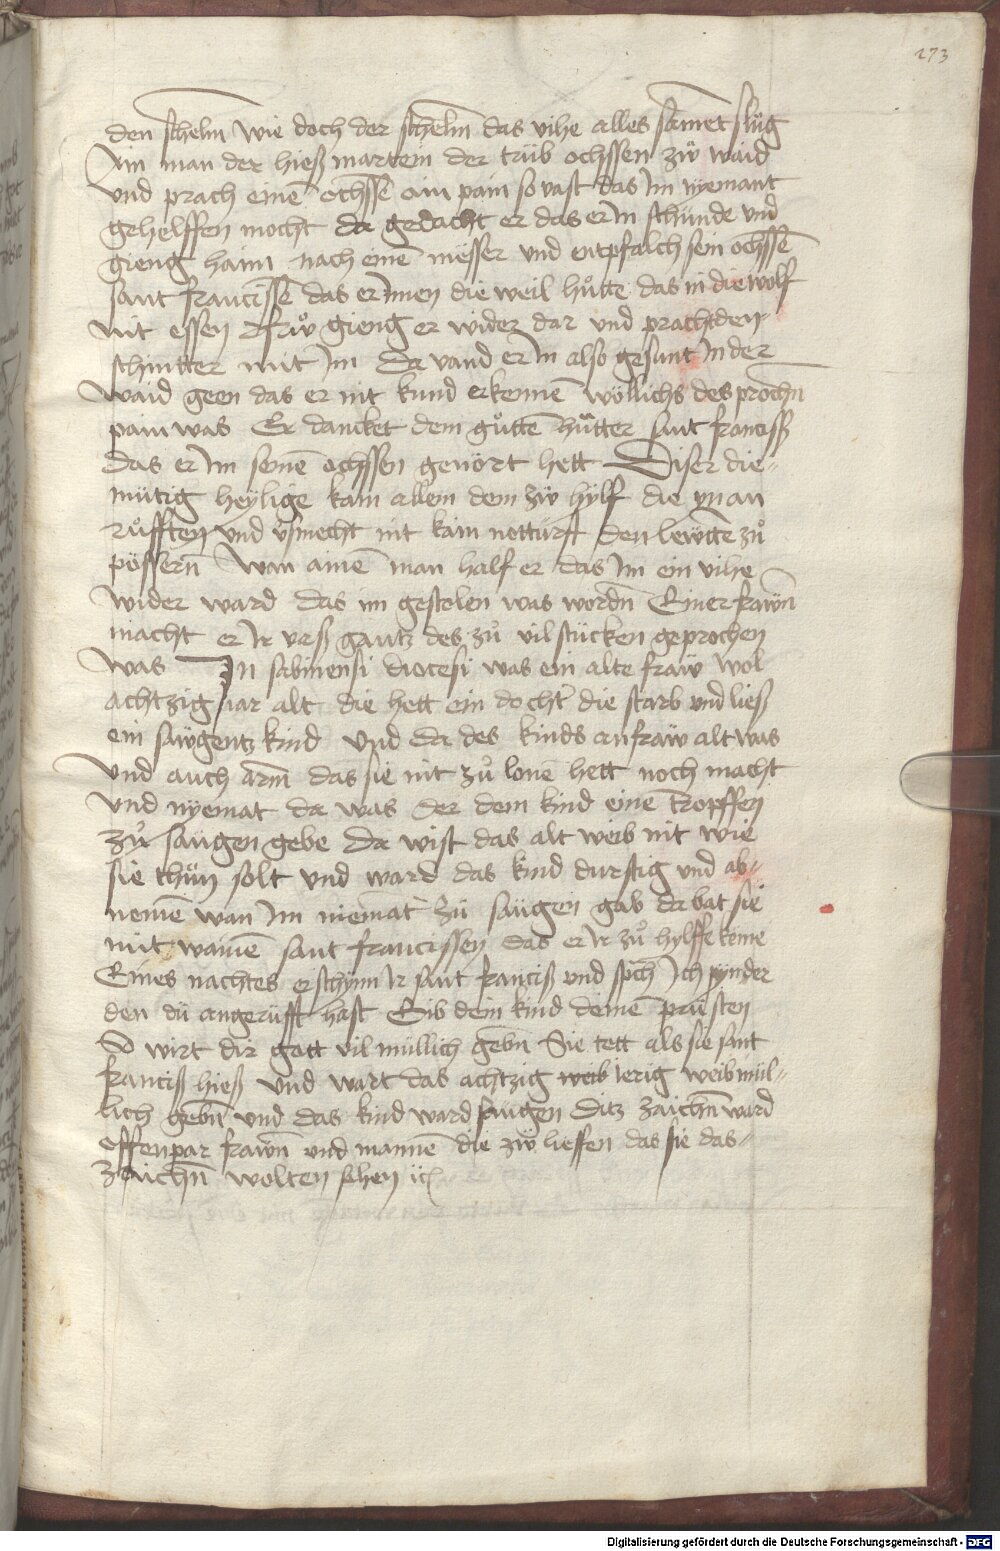 273
den schelm wie doch der schelm das vihe alles samet slüg
Ain man der hieß martein der trüb ochssen zü waid
vnd prach einē ochssē ain pain so vast das Im nyemant
gehelffen mocht da gedacht er das er In schunde vnd
gieng haim nach einē messer vnd entpfalch sein ochssē
sant francisse das er Innen die weil hůtte das in die wolf
nit essen frů gieng er wider dar vnd pracht den
schintter mit Im da vand er In also gesunt In der
waid geen das er nit kund erkennē wöllichs des prochn
pain was Er dancket dem gůttē hůtter sant franciss
das er Im seinē ochssen genört hett Diser die=
mütig heylige kam allem dem zü hylf die yn an
růfften vnd vsmecht nit kain notturft den lewtē zů
pössern Wan ainē man half er das Im ein vihe
wider ward das im gestolen was wordn Einer frawn
macht er Ir vaß gantz des zů vil stücken geprochen
was In sabinensi diocesi was ein alte fraw wol
achtzig iar alt die hett ein docht' die starb vnd ließ
ein saugentz kind vnd da des kinds anfraw alt was
vnd auch arm das sie nit zů lonē hett noch macht
vnd nyemat da was der dem kind einē tropffen
zů saugen gebe da wist das alt weib nit wie
sie thůn solt vnd ward das kind durstig vnd ab=
nemē wan Im niemāt zü saügen gab da bat sie
mit wainē sant francissen das er Ir zů hylffe keme
Eines nachtes erschynn Ir sant franciß vnd spch Ich pynder
den dü angerüfft hast Gib dein kind deinē prüsten
So wirt dir gott vil müllich gebn Sie tett als sie sant
franciß hieß vnd wart das achtzig weib ierig weib mül=
lich gebn vnd das kind ward saugen Ditz zaichn ward
offenpar frawn vnd mannē die zü lieffen das sie das
zaichn wolten sehen
Digitalisierung gefördert durch die Deutsche Forschungsgemeinschaft - DFG